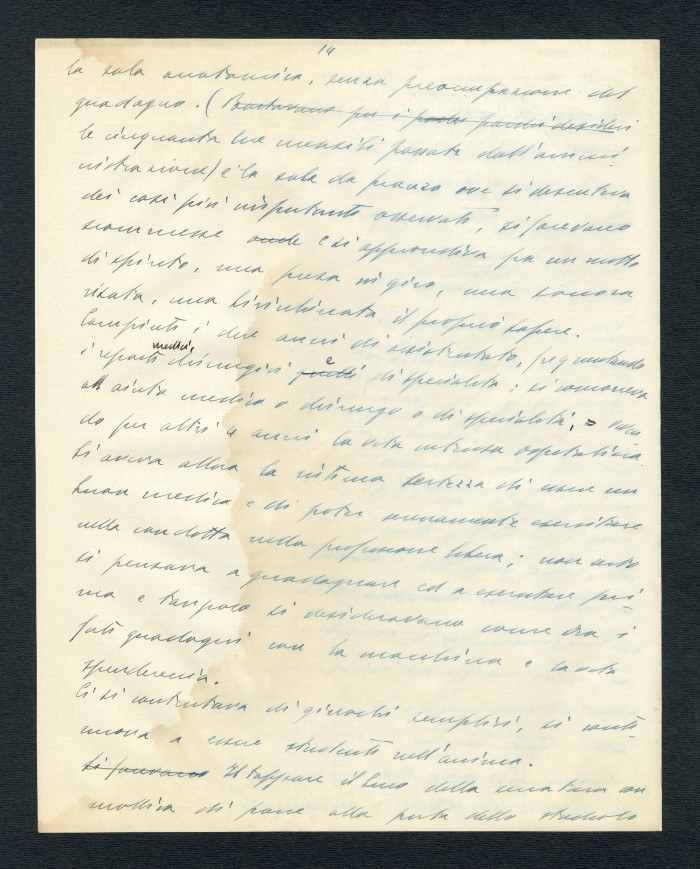 14
la sala anatomica, senza preoccupazione del
guadagno. (Bastavano per i pochi desideri
le cinquanta lire mensili passate dall'ammini-
strazione) e la sala da pranzo ove si discuteva
dei casi più importanti osservati, si facevano
scommesse onde e si apprendeva fra un motto
di spirito, una presa in giro, una sonora
risata, una bicchierata il proprio sapere.
Compiuti i due anni di assistentato, frequentando
i reparti medici, chirurgici e di specialità; si concorreva
ad aiuto medico o chirurgo o di specialità,
do per altri 4 anni la vita intensa ospitaliera.
Si aveva allora la intima certezza di essere un
buon medico e di poter serenamente esercitare
nella condotta nella professione libera; non certo
si pensava a guadagnare ed a esercitare pri-
ma e tampoco si desideravano come ora i
guadagni con la macchina e la vita
spendereccia.
Ci si contentava di giuochi semplici, si conti-
nuava a essere studenti nell'anima.
Si facevano Il tappare il buco della serratura con
mollica di pane alla porta dello studiolo